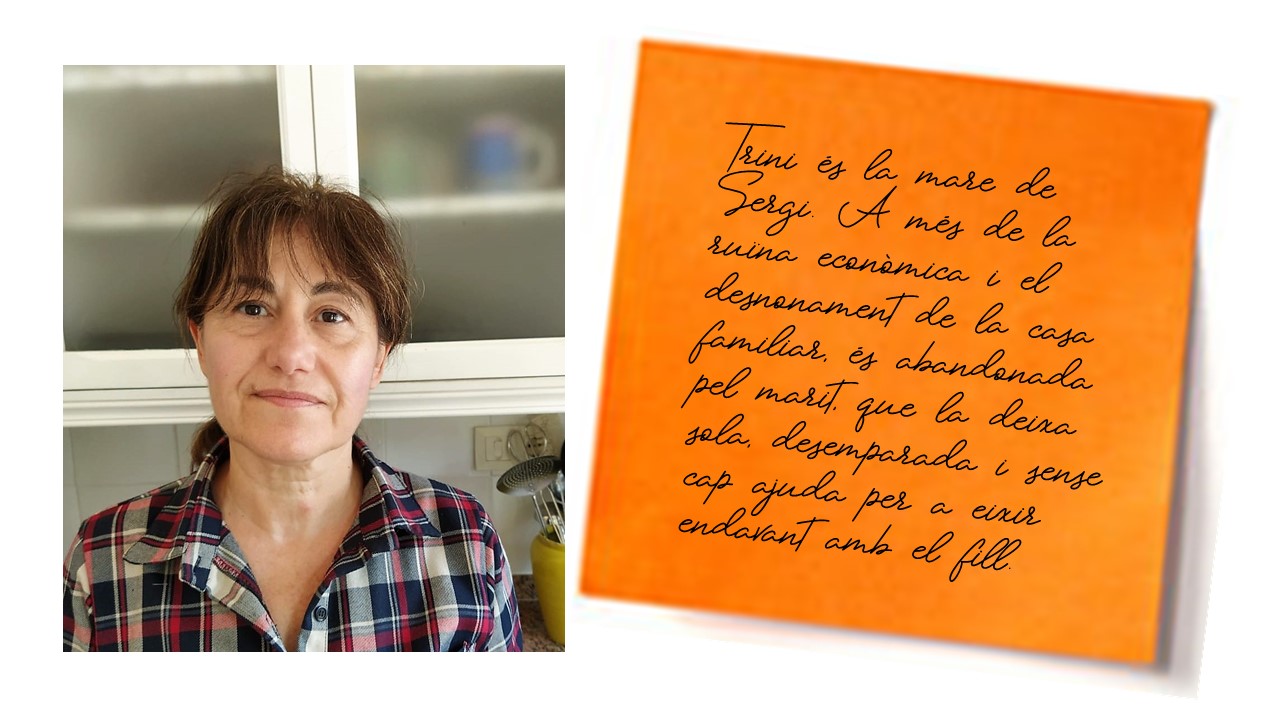 Trini és la mare de
Sergi. A més de la
ruïna econòmica i el
desnonament de la casa
familiar, és abandonada
pel marit, que la deixa
sola, desemparada i sense
cap ajuda per a eixir
endavant amb el fill.